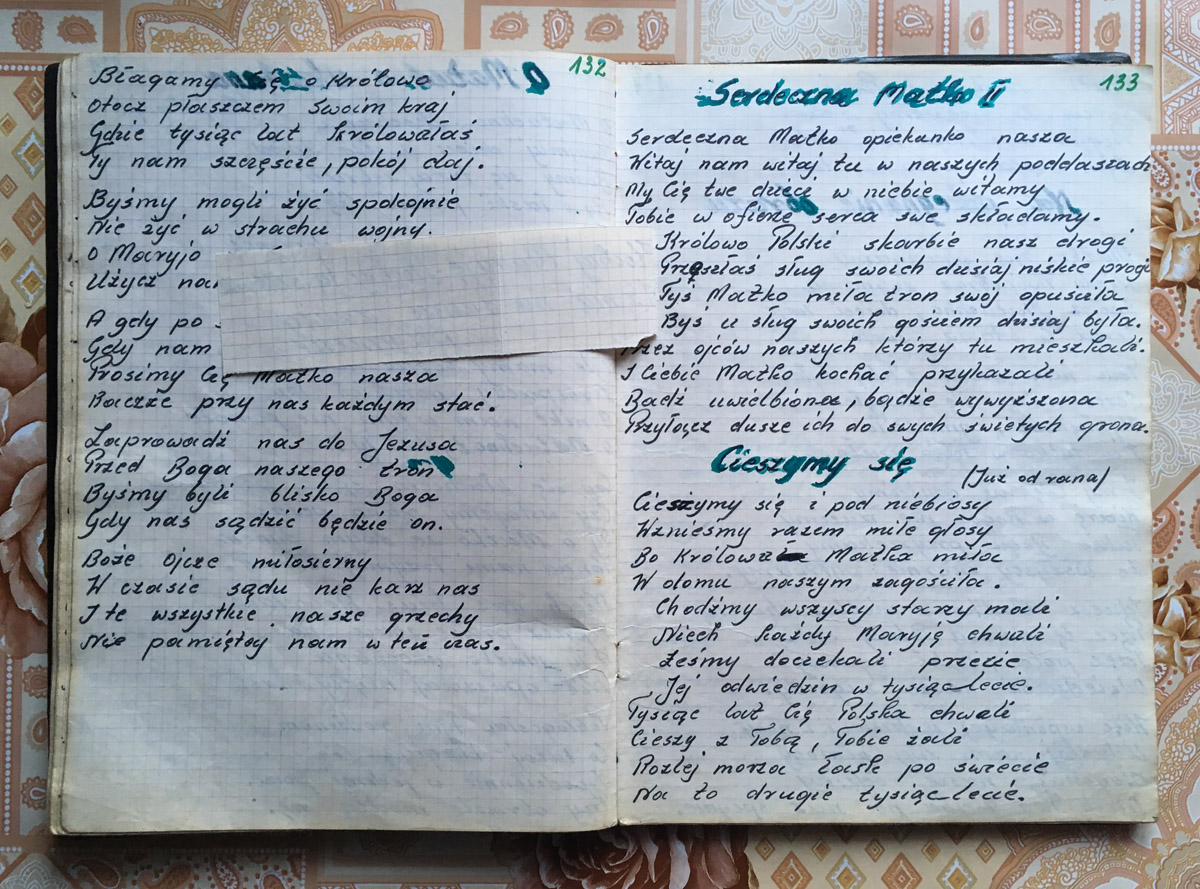 132
Błagamy Cię o Królowo
Otocz płaszczem Swoim kraj
Gdzie tysiąc lat królowałaś
Ty nam szczęście, pokój daj.
Byśmy mogli żyć spokojnie
Nie żyć w strachu wojny.
O Maryjo
Użycz
A gdy po
Gdy nam
Prosimy Cię Matko nasza
Raczże przy nas każdym stać.
Zaprowadź nas do Jezusa
Przed Boga naszego tron
Byśmy byli blisko Boga
Gdy nas sądzić będzie on.
Boże Ojcze miłosierny
W czasie sądu nie karz nas
I te wszystkie nasze grzechy
Nie pamiętaj nam w ten czas.
133
Serdeczna Matko II
Serdeczna Matko opiekunko nasza
Witaj nam witaj tu w naszych poddaszach
My Cię twe dzieci w niebie witamy
Tobie w ofierze serca swe składamy.
Królowo Polski skarbie nasz drogi
sług swoich dzisiaj niskie progi
Tyś Matko miła tron swój opuściła
Byś u sług swoich gościem dzisiaj była.
Przez ojców naszych którzy tu mieszkali.
I Ciebie Matko kochać przykazali
Bądź uwielbiona, bądże wywyższona
Przyłącz dusze ich do swych świętych grona.
Cieszymy się
(Już od rana)
Cieszymy się i pod niebiosy
Wznieśmy razem miłe głosy
Bo Królowa Matka miła
W domu naszym zagościła.
Chodźmy wszyscy starzy mali
Niech każdy Maryję chwali
Żeśmy doczekali przecie
Jej odwiedzin w tysiąclecie.
Tysiąc lat Cię Polska chwali
Cieszy z Tobą, Tobie żali
Rozlej morza łask po świecie
Na to drugie tysiąclecie.